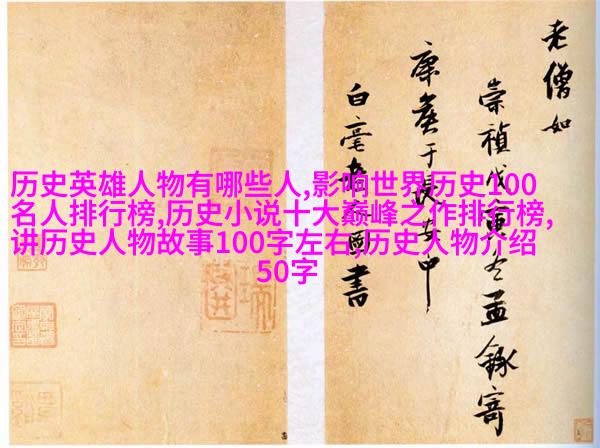 历史英雄人物有哪些人,影响世界历史100
名人排行榜,历史小说十大巅峰之作排行榜,
讲历史人物故事100字左右,历史人物介绍
50字
老僧如
崇禎戊寅冬孟錄寄
康矦于長安中
白毫
書